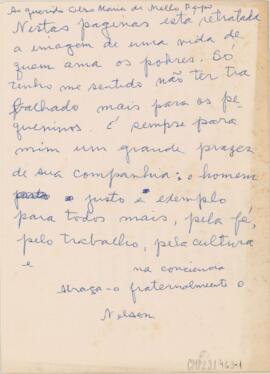 Ao querido Celso Maria de Mello Pupo
Nestas paginas esta retratada
a imagem de uma vida de
quem ama os pobres. Só
tenho me sentido não ter tra
balhado mais para os pe
queninos. É sempre para
mim um grande prazer
de sua companhia: o homem
justo e exemplo
para todos mais, pela fé,
pelo trabalho, pela cultura
e na conciencia
Abraça-o fraternalmente o
Nelson